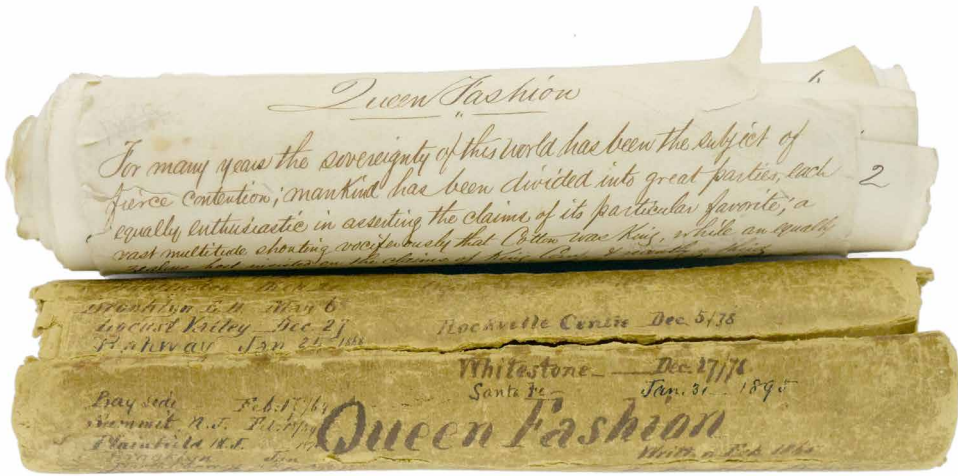 Queen Fashion
For many years the sovereignty of this world has been the subject of
fierce contention; mankind has been divided into great parties, each
equally enthusiastic in asserting the claims of its particular favorite; a
vast multitude shouting vociferously that Cotton was King, while an equally
2
May 6
Locust Valley Dec 27
Rockville Centre Dec 5/78
Rahway Jan
Whitestone Dec. 27/76
Santa Fe Jan. 31 1895
Bayside Feb. 17/
Summit N.J. Feb.
Plainfield N.J.
Queen Fashion
Brooklyn Jan
Written Feb.